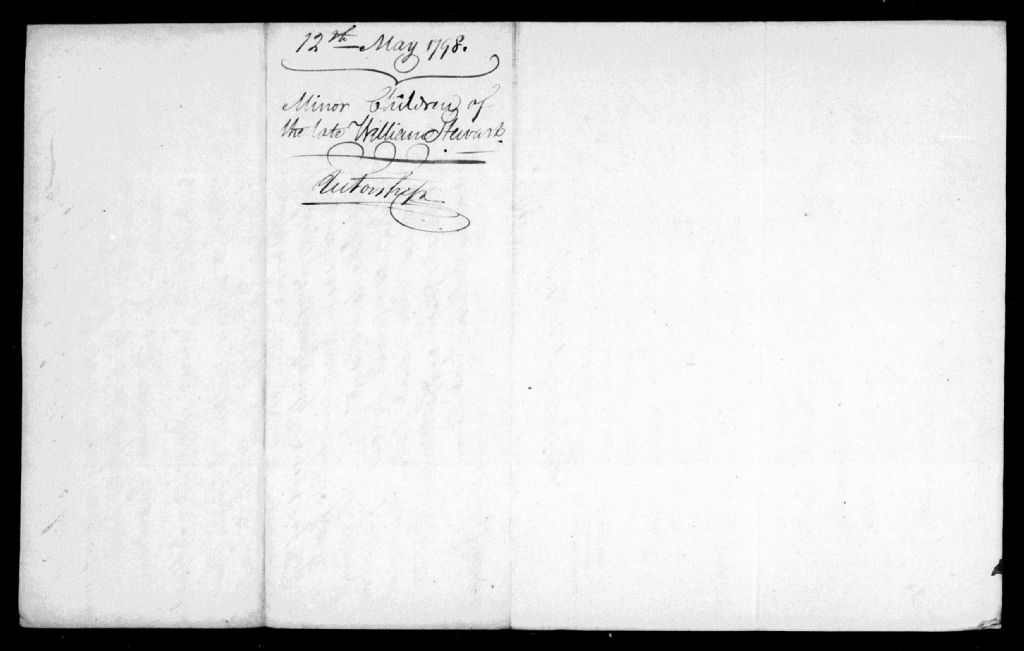 12th May 1798.
Minor Children of
the late William Stewart
Tutorship